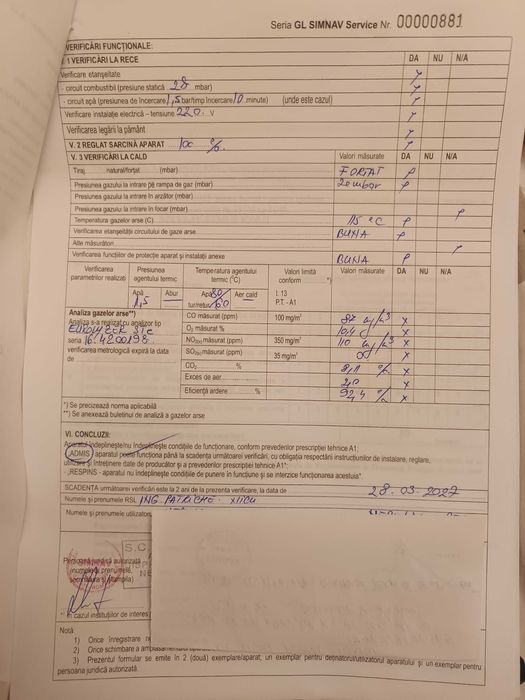 Seria GL SIMNAV Service Nr. 00000881
VERIFICĂRI FUNCȚIONALE:
1 VERIFICĂRI LA RECE DA NU N/A
Verificare etanșeitate
- circuit combustibil (presiune statică 28 mbar)
- circuit apă (presiunea de încercare 1,5 bar/timp încercare 10 minute) (unde este cazul)
Verificare instalație electrică – tensiune 220 V
Verificarea legării la pământ
V. 2 REGLAT SARCINĂ APARAT 100 %
V. 3 VERIFICĂRI LA CALD Valori măsurate DA NU N/A
Tiraj natural/forțat (mbar) FORȚAT
Presiunea gazului la intrare pe rampa de gaz (mbar) 20 mbar
Presiunea gazului la intrare în arzător (mbar)
Presiunea gazului la intrare în focar (mbar)
Temperatura gazelor arse (C) 115 °C
Verificarea etanșeității circuitului de gaze arse BUNA
Alte măsurători
Verificarea funcțiilor de protecție aparat și instalații anexe BUNA
Verificarea parametrilor realizați Presiunea agentului termic Temperatura agentului termic (°C) Valori limită conform *) Valori măsurate DA NU N/A
Apă Abur Apă Aer cald I. 13
1,5 tur/retur 80/60 P.T. - A1
Analiza gazelor arse**)
Analiza s-a realizat cu analizor tip
seria
verificarea metrologică expiră la data de
CO măsurat (ppm) 100 mg/m³
O₂ măsurat %
NO(x) măsurat (ppm) 350 mg/m³ 110
SO(x) măsurat (ppm) 35 mg/m³
CO₂ % 8,1 %
Exces de aer 2,0
Eficiență ardere % 92,4 %
*) Se precizează norma aplicabilă
**) Se anexează buletinul de analiză a gazelor arse
VI. CONCLUZII:
Aparatul îndeplinește/nu îndeplinește condițiile de funcționare, conform prevederilor prescripției tehnice A1:
ADMIS - aparatul poate funcționa până la scadența următoarei verificări, cu obligația respectării instrucțiunilor de instalare, reglare,
utilizare și întreținere date de producător și a prevederilor prescripției tehnice A1*;
RESPINS - aparatul nu îndeplinește condițiile de punere în funcțiune și se interzice funcționarea acestuia*.
SCADENȚA următoarei verificări este la 2 ani de la prezenta verificare, la data de 28.03.2027
Numele și prenumele RSL ING. PATRICHE
Numele și prenumele utilizator
S.C.
SIMNAV
Persoană juridică autorizată
(numele și prenumele,
semnătura și ștampila)
* În cazul instituțiilor de interes
Notă
1) Orice înregistrare
2) Orice schimbare a
3) Prezentul formular se emite în 2 (două) exemplare/aparat, un exemplar pentru deținătorul/utilizatorul aparatului și un exemplar pentru
persoana juridică autorizată.